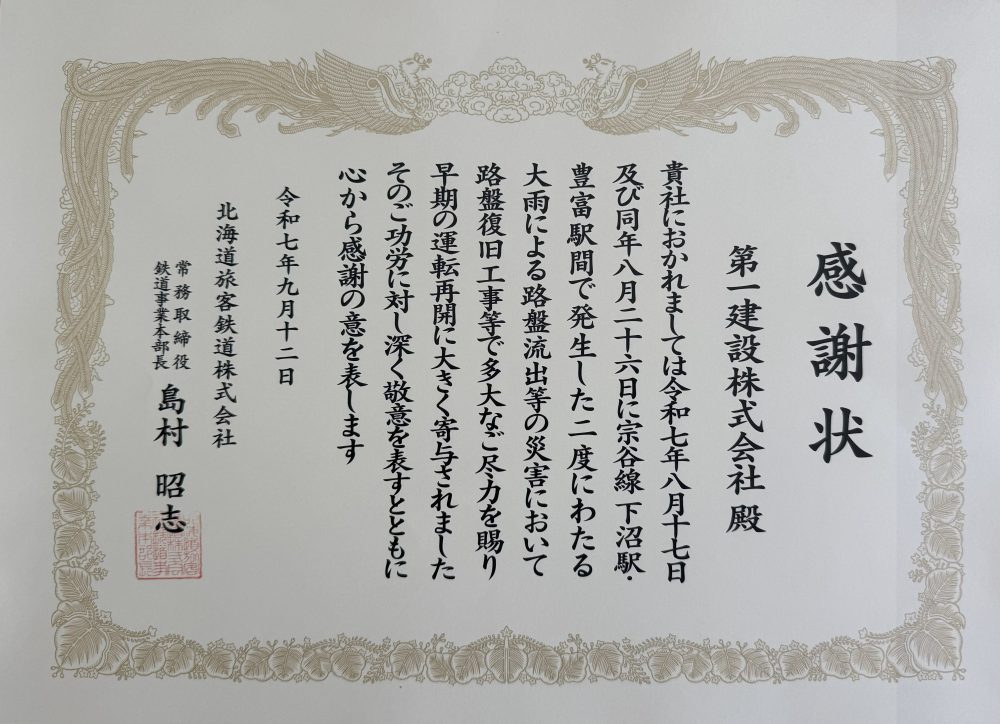 感謝状
第一建設株式会社 殿
貴社におかれましては令和七年八月十七日
及び同年八月二十六日に宗谷線 下沼駅・
豊富駅間で発生した二度にわたる
大雨による路盤流出等の災害において
路盤復旧工事等で多大なご尽力を賜り
早期の運転再開に大きく寄与されました
そのご功労に対し深く敬意を表すとともに
心から感謝の意を表します
令和七年九月十二日
北海道旅客鉄道株式会社
常務取締役
鉄道事業本部長
島村 昭志